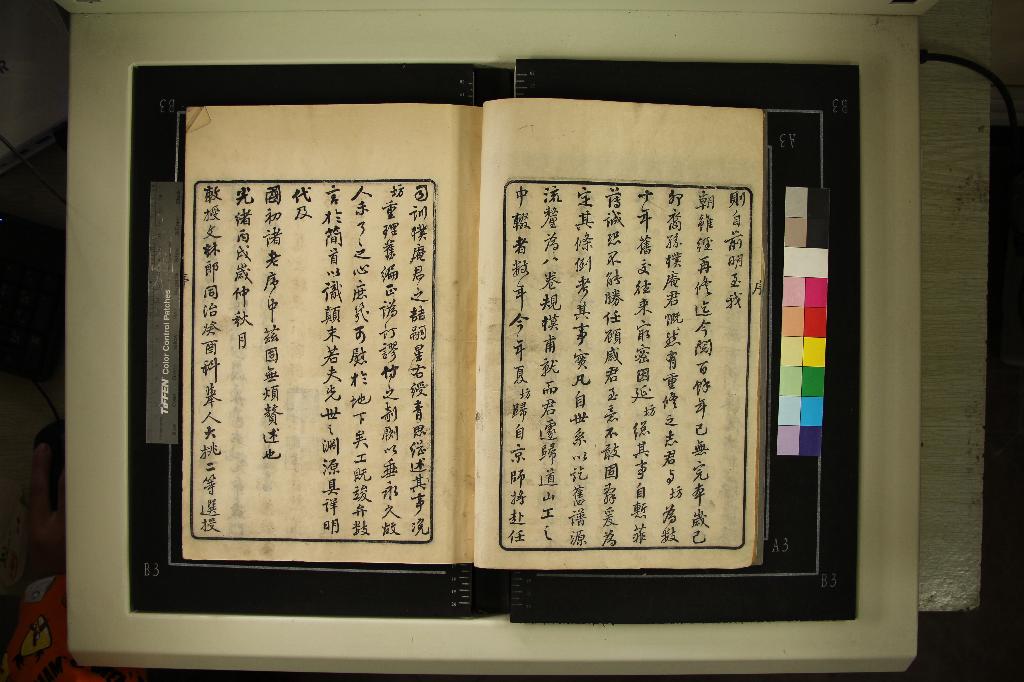 則自前明至我
朝雖經再修迄今閱百餘年已無完本歲己
卯裔孫樸庵君慨然有重修之志君與坊為數
十年舊交往來最密因延坊總其事自慙菲
薄誠恐不能勝任顧感君至意不敢固辭爰為
定其條例考其事實凡自世系以訖舊譜源
流釐為八卷規模甫就而君遽歸道山工之
中輟者數年今年夏坊歸自京師將赴任
司訓樸庵君之哲嗣星右綬青思繼述其事浼
坊重理舊編正譌訂謬付之剞劂以垂永久故
人未了之心庶幾可慰於地下矣工既竣弁數
言於簡首以識顛末若夫先世之淵源具詳明
代及
國初諸老序中茲固無煩贅述也
光緒丙戌歲仲秋月
敕授文林郎同治癸酉科舉人大挑二等選授
TIFFEN Color Control Patches
B3
B3
A3
A3
B3
B3